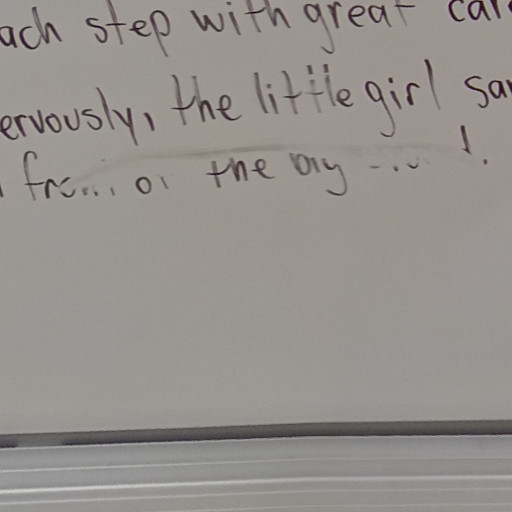 ach step with great car
ervously, the little girl sa
the